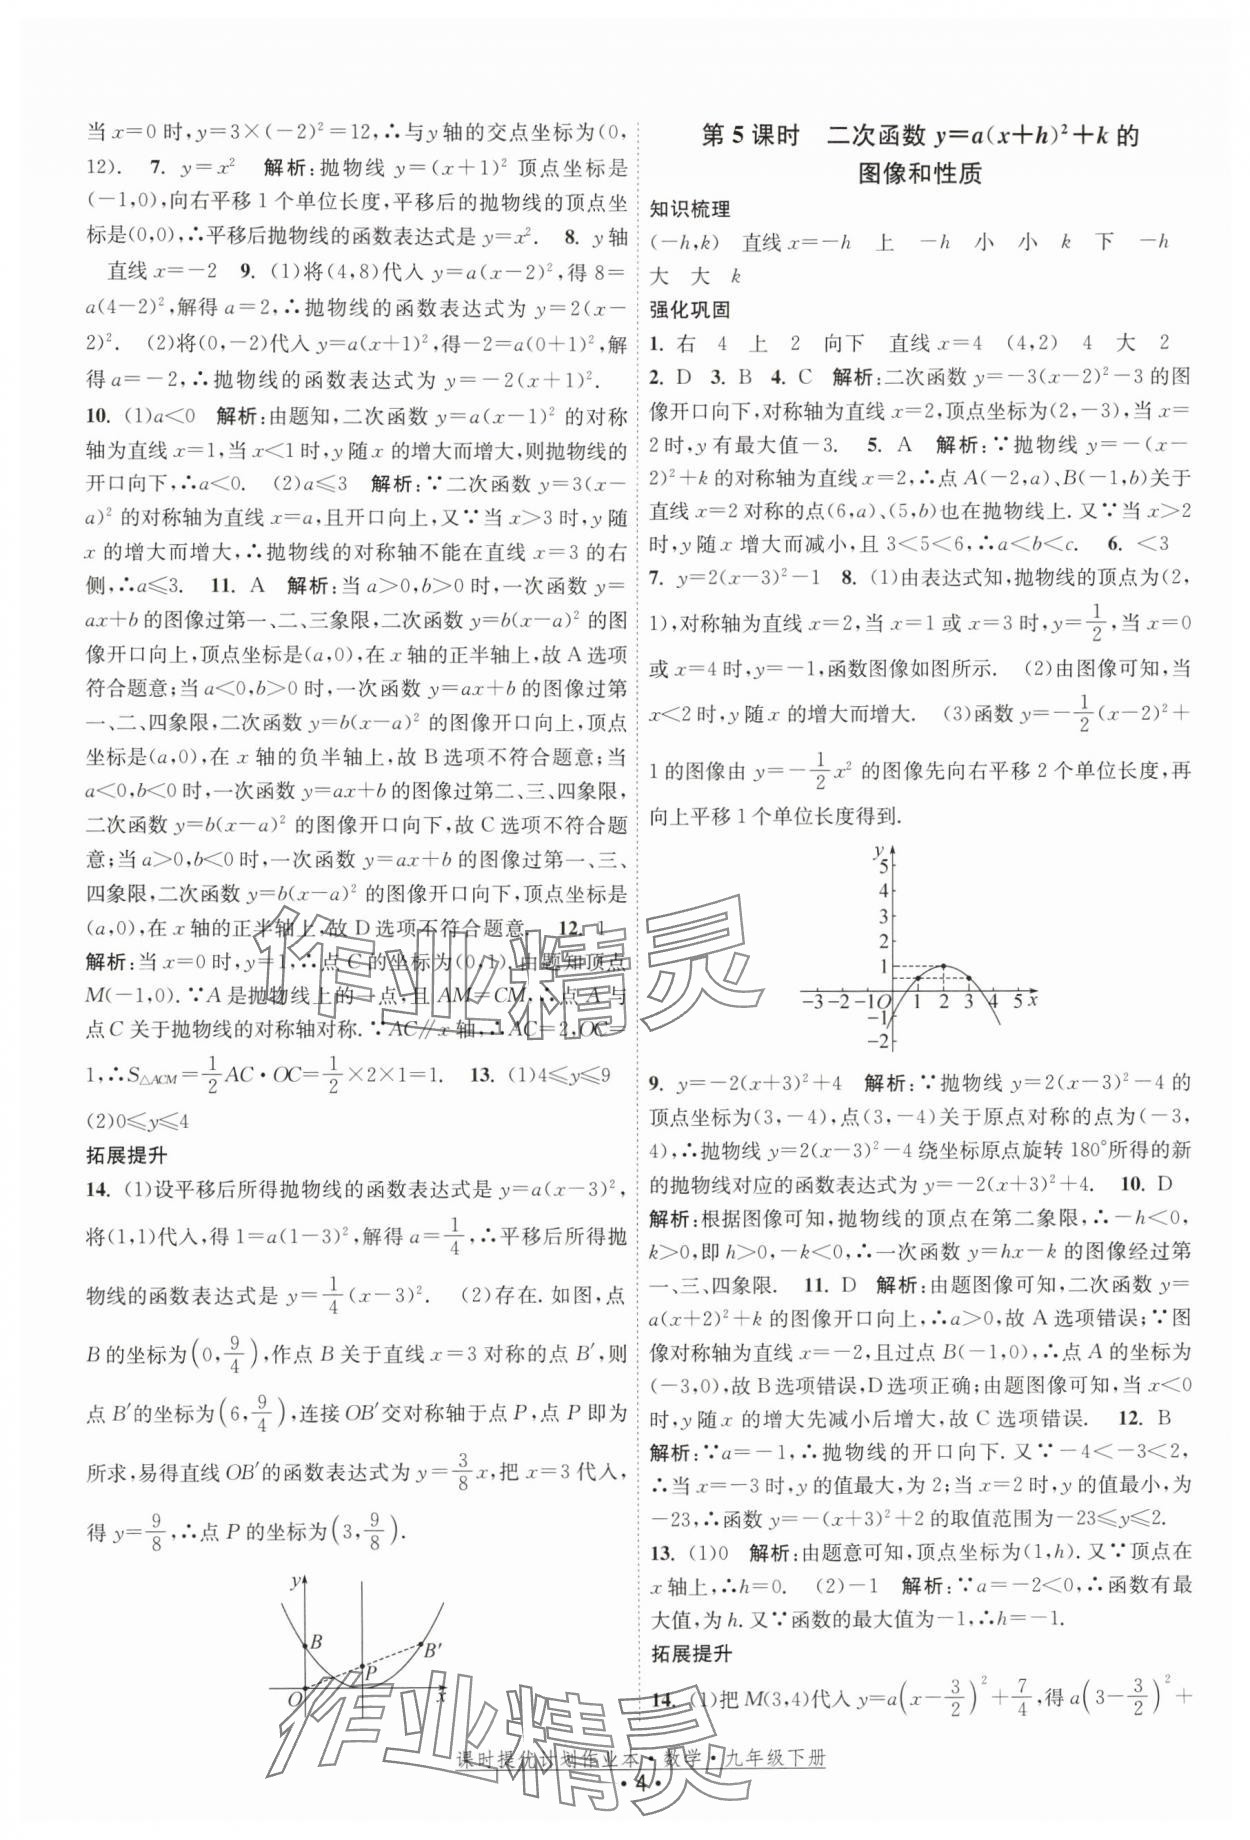 当 x=0 时,y=3×(-2)²=12,∴与 y 轴的交点坐标为(0,
12). 7. y=x² 解析:抛物线 y=(x+1)² 顶点坐标是
(-1,0),向右平移 1 个单位长度,平移后的抛物线的顶点坐
标是(0,0),∴平移后抛物线的函数表达式是 y=x². 8. y 轴
直线 x=-2 9. (1)将(4,8)代入 y=a(x-2)²,得 8=
a(4-2)²,解得 a=2,∴抛物线的函数表达式为 y=2(x-
2)². (2)将(0,-2)代入 y=a(x+1)²,得-2=a(0+1)²,解
得 a=-2,∴抛物线的函数表达式为 y=-2(x+1)².
10. (1)a<0 解析:由题知,二次函数 y=a(x-1)² 的对称
轴为直线 x=1,当 x<1 时,y 随 x 的增大而增大,则抛物线的
开口向下,∴a<0. (2)a≤3 解析:∵二次函数 y=3(x-
a)² 的对称轴为直线 x=a,且开口向上,又∵当 x>3 时,y 随
x 的增大而增大,∴抛物线的对称轴不能在直线 x=3 的右
侧,∴a≤3. 11. A 解析:当 a>0,b>0 时,一次函数 y=
ax+b 的图像过第一、二、三象限,二次函数 y=b(x-a)² 的图
像开口向上,顶点坐标是(a,0),在 x 轴的正半轴上,故 A 选项
符合题意;当 a<0,b>0 时,一次函数 y=ax+b 的图像过第
一、二、四象限,二次函数 y=b(x-a)² 的图像开口向上,顶点
坐标是(a,0),在 x 轴的负半轴上,故 B 选项不符合题意;当
a<0,b<0 时,一次函数 y=ax+b 的图像过第二、三、四象限,
二次函数 y=b(x-a)² 的图像开口向下,故 C 选项不符合题
意;当 a>0,b<0 时,一次函数 y=ax+b 的图像过第一、三、
四象限,二次函数 y=b(x-a)² 的图像开口向下,顶点坐标是
(a,0),在 x 轴的正半轴上,故 D 选项不符合题意. 12. 1
解析:当 x=0 时,y=1,∴点 C 的坐标为(0,1).由题知顶点
M(-1,0).∵A 是抛物线上的一点,且 AM=CM,∴点 A 与
点 C 关于抛物线的对称轴对称.∵AC∥x 轴,∴AC=2,OC=
1,∴S△ACM=1/2 AC·OC=1/2×2×1=1. 13. (1)4≤y≤9
(2)0≤y≤4
拓展提升
14. (1)设平移后所得抛物线的函数表达式是 y=a(x-3)²,
将(1,1)代入,得 1=a(1-3)²,解得 a=1/4,∴平移后所得抛
物线的函数表达式是 y=1/4(x-3)². (2)存在.如图,点
B 的坐标为(0,9/4),作点 B 关于直线 x=3 对称的点 B′,则
点 B′的坐标为(6,9/4),连接 OB′交对称轴于点 P,点 P 即为
所求,易得直线 OB′的函数表达式为 y=3/8 x,把 x=3 代入,
得 y=9/8,∴点 P 的坐标为(3,9/8).
y
B
B′
P
O
x
第 5 课时 二次函数 y=a(x+h)²+k 的
图像和性质
知识梳理
(-h,k) 直线 x=-h 上 -h 小 小 k 下 -h
大 大 k
强化巩固
1. 右 4 上 2 向下 直线 x=4 (4,2) 4 大 2
2. D 3. B 4. C 解析:二次函数 y=-3(x-2)²-3 的图
像开口向下,对称轴为直线 x=2,顶点坐标为(2,-3),当 x=
2 时,y 有最大值-3. 5. A 解析:∵抛物线 y=-(x-
2)²+k 的对称轴为直线 x=2,∴点 A(-2,a)、B(-1,b)关于
直线 x=2 对称的点(6,a)、(5,b)也在抛物线上.又∵当 x>2
时,y 随 x 增大而减小,且 3<5<6,∴a<b<c. 6. <3
7. y=2(x-3)²-1 8. (1)由表达式知,抛物线的顶点为(2,
1),对称轴为直线 x=2,当 x=1 或 x=3 时,y=1/2,当 x=0
或 x=4 时,y=-1,函数图像如图所示. (2)由图像可知,当
x<2 时,y 随 x 的增大而增大. (3)函数 y=-1/2(x-2)²+
1 的图像由 y=-1/2 x² 的图像先向右平移 2 个单位长度,再
向上平移 1 个单位长度得到.
y
5
4
3
2
1
-3 -2 -1 O 1 2 3 4 5 x
-1
-2
9. y=-2(x+3)²+4 解析:∵抛物线 y=2(x-3)²-4 的
顶点坐标为(3,-4),点(3,-4)关于原点对称的点为(-3,
4),∴抛物线 y=2(x-3)²-4 绕坐标原点旋转 180°所得的新
的抛物线对应的函数表达式为 y=-2(x+3)²+4. 10. D
解析:根据图像可知,抛物线的顶点在第二象限,∴-h<0,
k>0,即 h>0,-k<0,∴一次函数 y=hx-k 的图像经过第
一、三、四象限. 11. D 解析:由题图像可知,二次函数 y=
a(x+2)²+k 的图像开口向上,∴a>0,故 A 选项错误;∵图
像对称轴为直线 x=-2,且过点 B(-1,0),∴点 A 的坐标为
(-3,0),故 B 选项错误,D 选项正确;由题图像可知,当 x<0
时,y 随 x 的增大先减小后增大,故 C 选项错误. 12. B
解析:∵a=-1,∴抛物线的开口向下.又∵-4<-3<2,
∴当 x=-3 时,y 的值最大,为 2;当 x=2 时,y 的值最小,为
-23,∴函数 y=-(x+3)²+2 的取值范围为-23≤y≤2.
13. (1)0 解析:由题意可知,顶点坐标为(1,h).又∵顶点在
x 轴上,∴h=0. (2)-1 解析:∵a=-2<0,∴函数有最
大值,为 h.又∵函数的最大值为-1,∴h=-1.
拓展提升
14. (1)把 M(3,4)代入 y=a(x-3/2)²+7/4,得 a(3-3/2)²+
课时提优计划作业本·数学·九年级下册
·4·
作业精灵
作业精灵